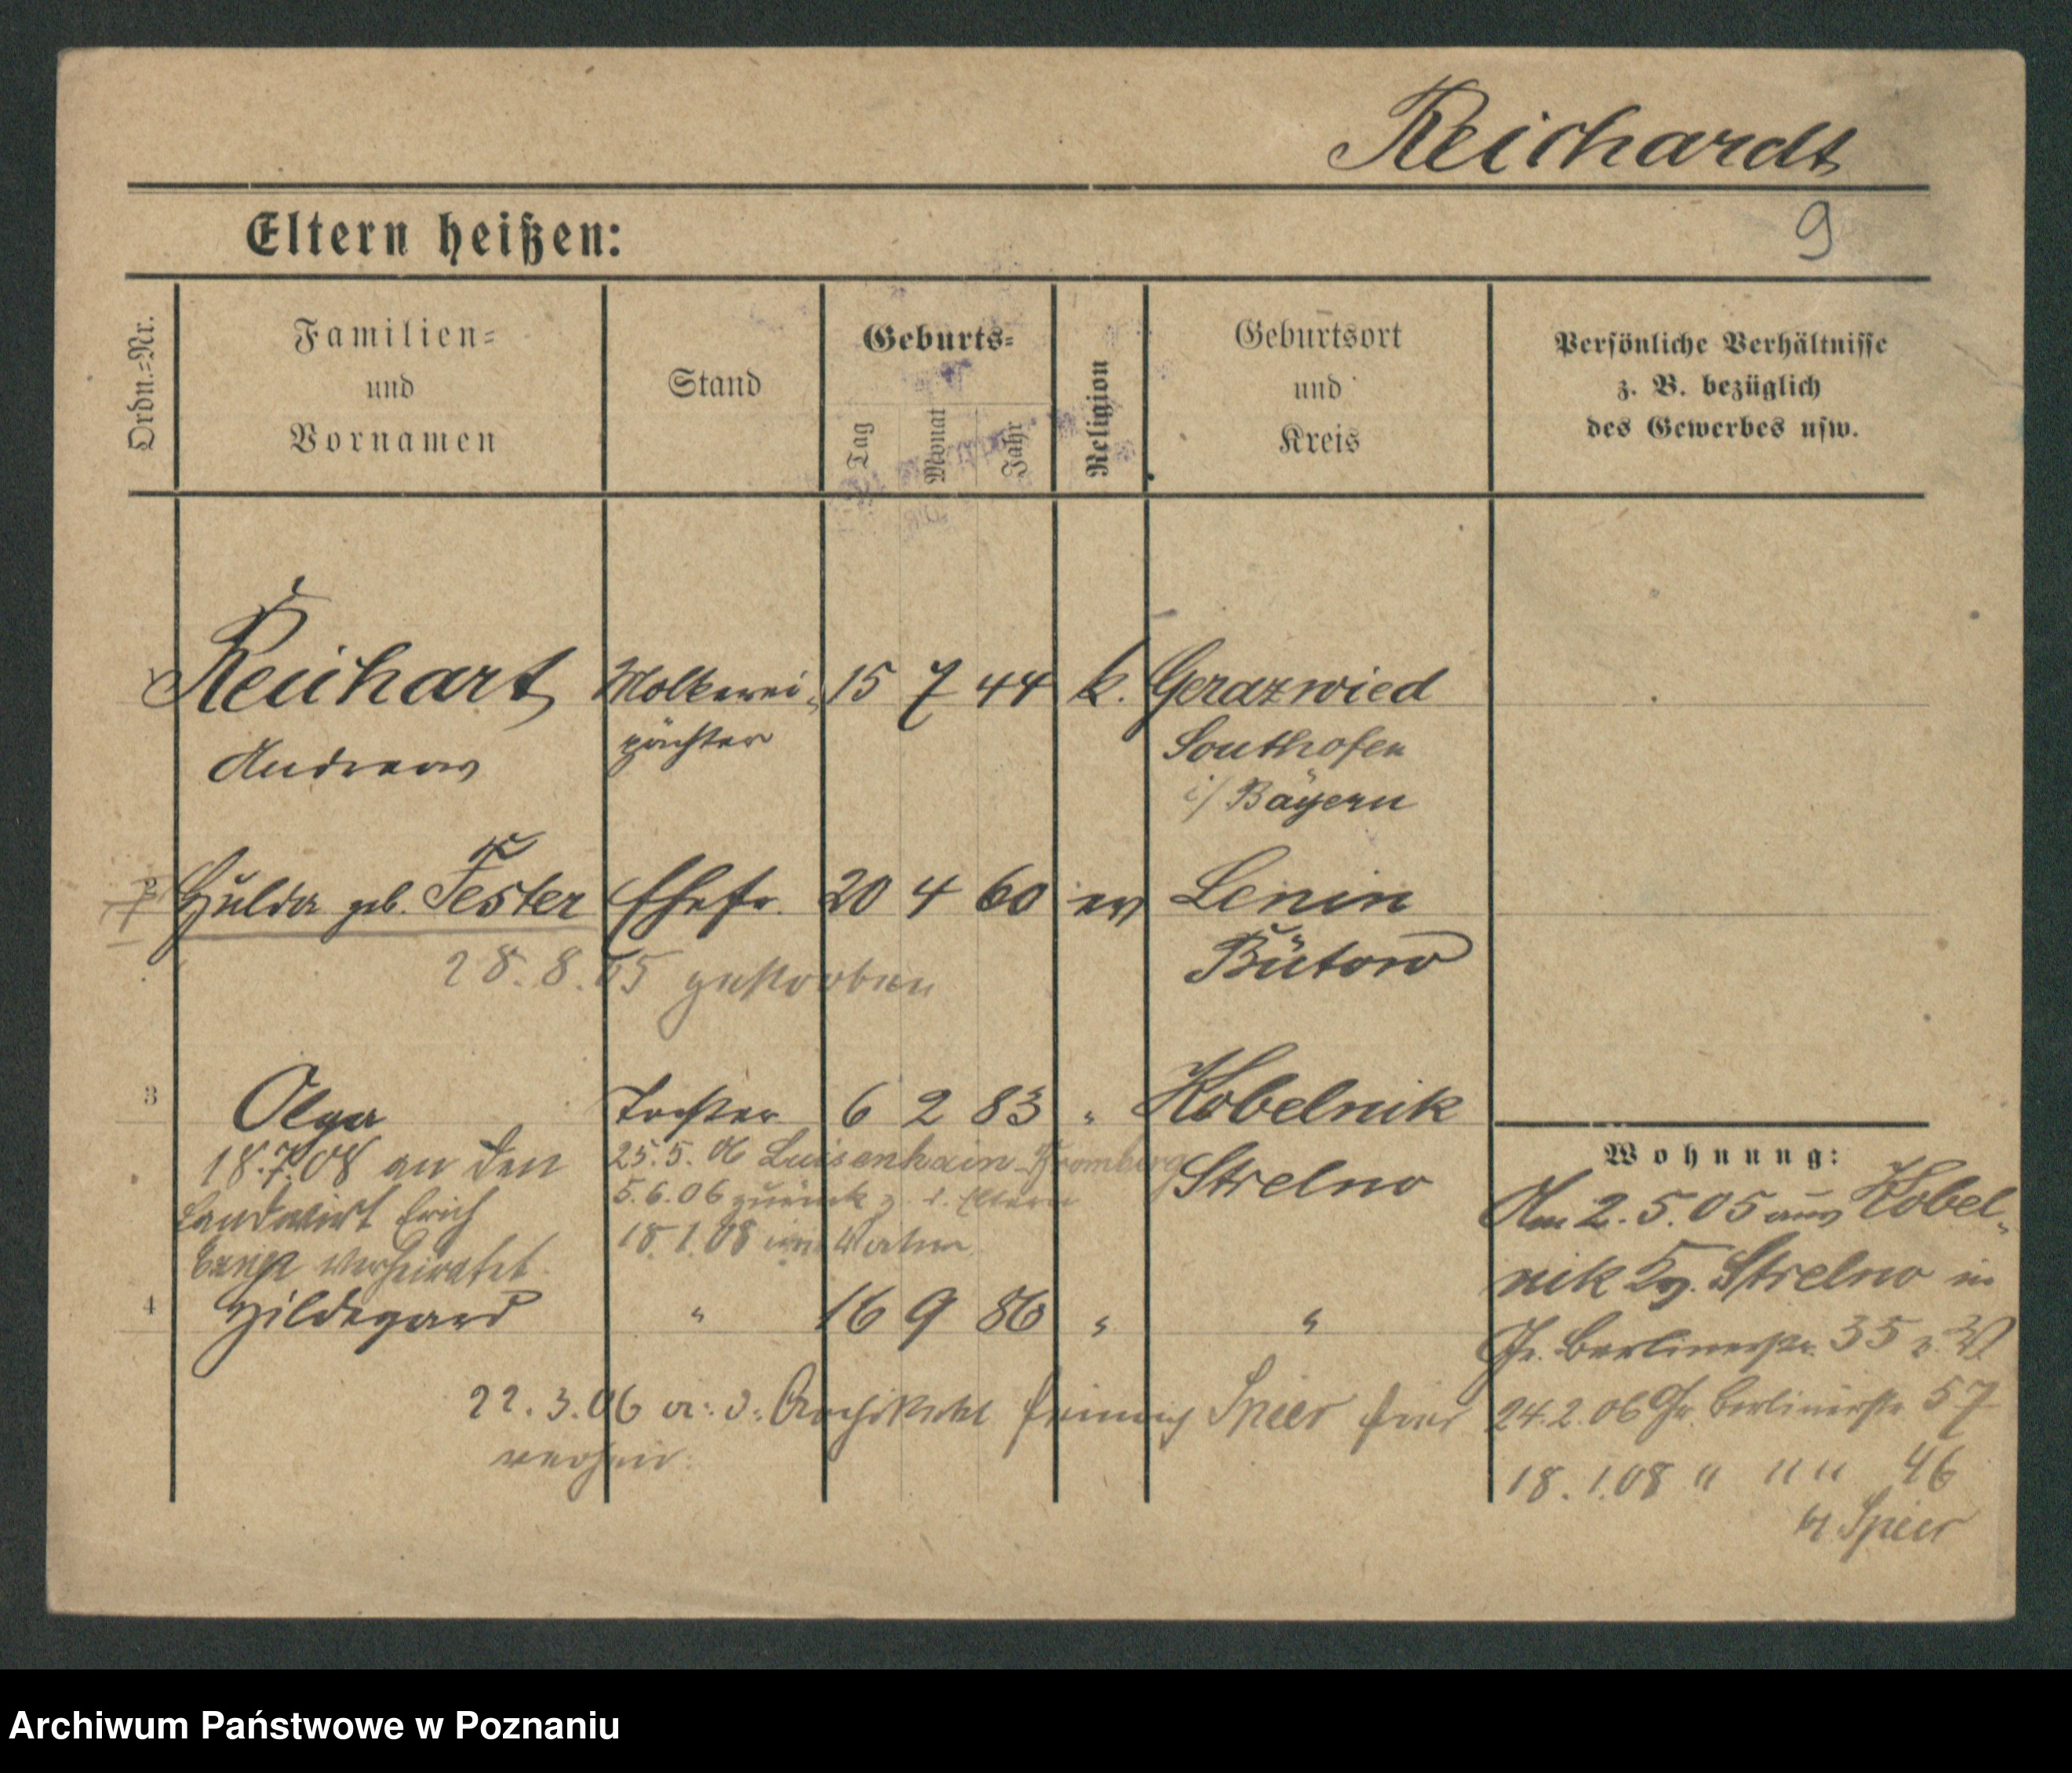 Reichardt
Eltern heißen:
9
Ordn.-Nr.
Familien-
und
Vornamen
Stand
Geburts-
Tag
Monat
Jahr
Religion
Geburtsort
und
Kreis
Persönliche Verhältnisse
z. B. bezüglich
des Gewerbes usw.
Reichart Molkerei- 15 7 44 k. Gerazwied
Andreas pächter Southofen
i/ Bayern
2 Hulda geb. Fester Ehefr. 20 4 60 ev Lenin
28.8.05 gestorben Bütow
3 Olga Tochter 6 2 83 " Kobelnik
18.7.08 an den
Landwirt Erich
verheiratet
25.5.06 Luisenhain Bromberg
5.6.06 zurück z. d. Eltern
18.1.08
Strelno
4 Hildegard " 16 9 86 " "
22.3.06 a. d. Architekt Spier hier
verheir.
Wohnung:
Am 2.5.05 aus Kobel-
nik Strelno in
Gr. Berlinerstr. 35
24.2.06 Gr. Berlinerstr 57
18.1.08 " " " 46
b/ Spier
Archiwum Państwowe w Poznaniu